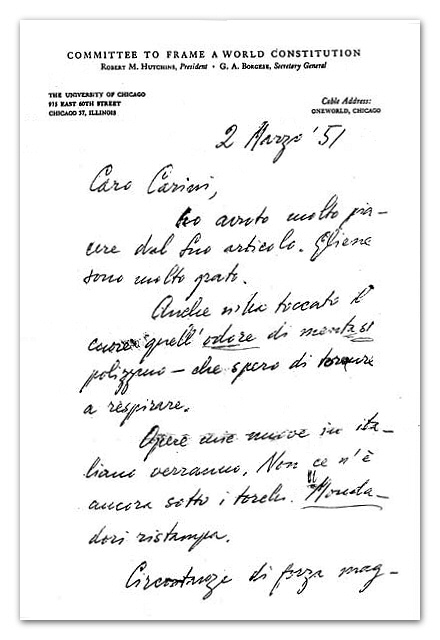 COMMITTEE TO FRAME A WORLD CONSTITUTION
ROBERT M. HUTCHINS, President • G. A. BORGESE, Secretary General
THE UNIVERSITY OF CHICAGO
975 EAST 60TH STREET
CHICAGO 37, ILLINOIS
Cable Address:
ONEWORLD, CHICAGO
2 Marzo '51
Caro Carini,
ho avuto molto pia-
cere dal Suo articolo. Gliene
sono molto grato.
Anche mi ha toccato il
cuore quell'odore di mentasi
polizzano – che spero di tornare
a respirare.
Opere mie nuove in ita-
liano verranno. Non ce n'è
ancora sotto i torchi. Monda-
dori ristampa.
Circostanze di forza mag-